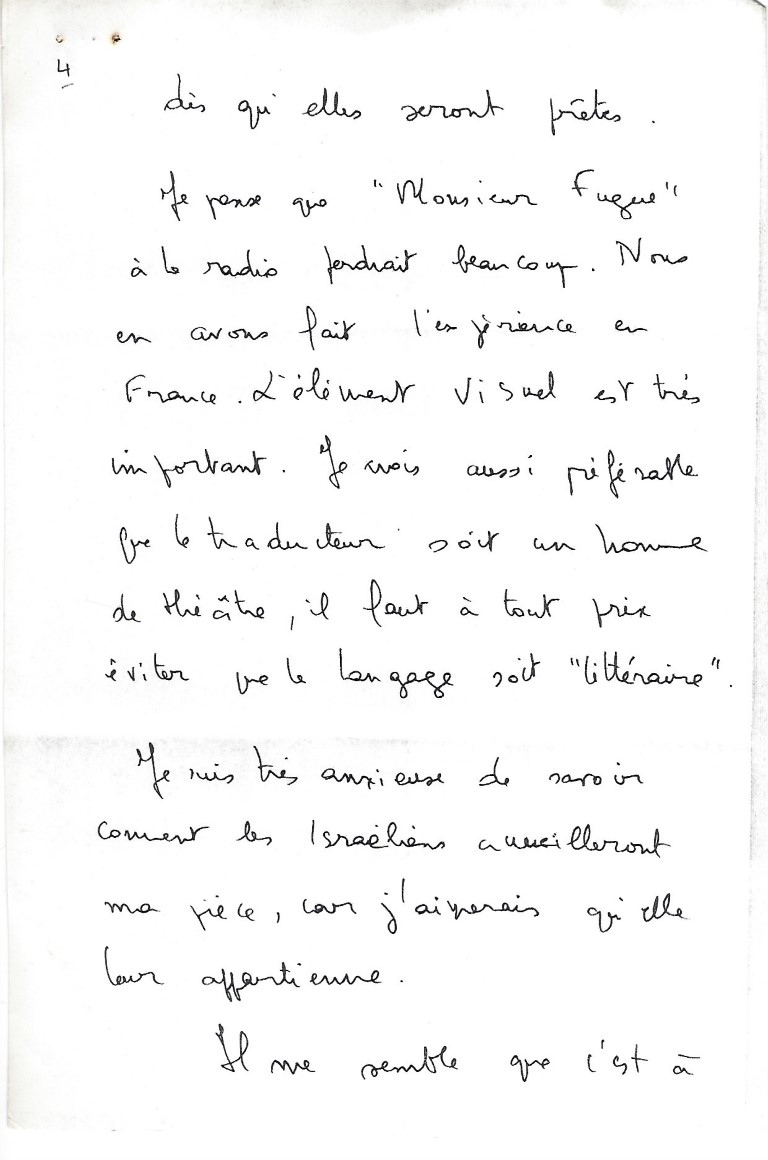 4
dès qu'elles seront prêtes.
Je pense que "Monsieur Fugue"
à la radio perdrait beaucoup. Nous
en avons fait l'expérience en
France. L'élément visuel est très
important. Je crois aussi préférable
que le traducteur soit un homme
de théâtre, il faut à tout prix
éviter que le langage soit "littéraire".
Je suis très anxieuse de savoir
comment les Israéliens accueilleront
ma pièce, car j'aimerais qu'elle
leur appartienne.
Il me semble que c'est à